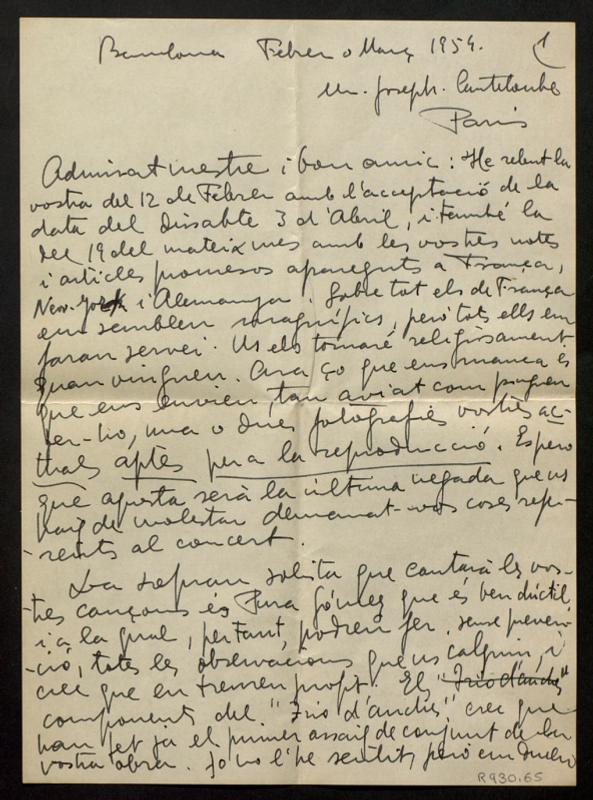 Barcelona Febrer o Març 1954. 1
Mr. Joseph. Canteloube
Paris
Admirat mestre i bon amic: He rebut la
vostra del 12 de Febrer amb l'acceptació de la
data del dissabte 3 d'Abril, i també la
del 19 del mateix mes amb les vostres notes
i articles promesos apareguts a França,
New-York i Alemanya. Sobre tot els de França
em semblen magnífics, però tots ells em
faran servei. Us els tornaré religiosament
quan vinguen. Ara ço que ens manca és
que ens envien, tan aviat com puguen
fer-ho, una o dues fotografies vostres ac-
tuals aptes per a la reproducció. Espero
que aquesta serà la última vegada que us
haig de molestar demanat-vos coses refe-
rents al concert.
La sopran solista que cantarà les vos-
tres cançons és Pura Gómez que és ben dúctil
i a la qual, per tant, podreu fer, sense preven-
ció, totes les observacions que us calguin, i
crec que en treureu profit. Els "Trio d'anches"
components del "Trio d'anches" crec que
han fet ja el primer assaig de conjunt de la
vostra obra. Jo no l'he sentits però em diuen
R930.65